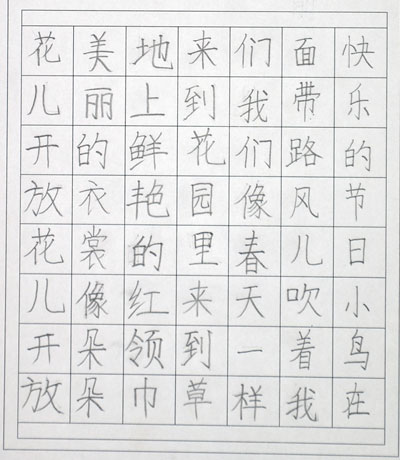 快乐的节日小鸟在
面带路风儿吹着我
们我们像春天一样
来到花园里来到草
地上鲜艳的红领巾
美丽的衣裳像朵朵
花儿开放花儿开放